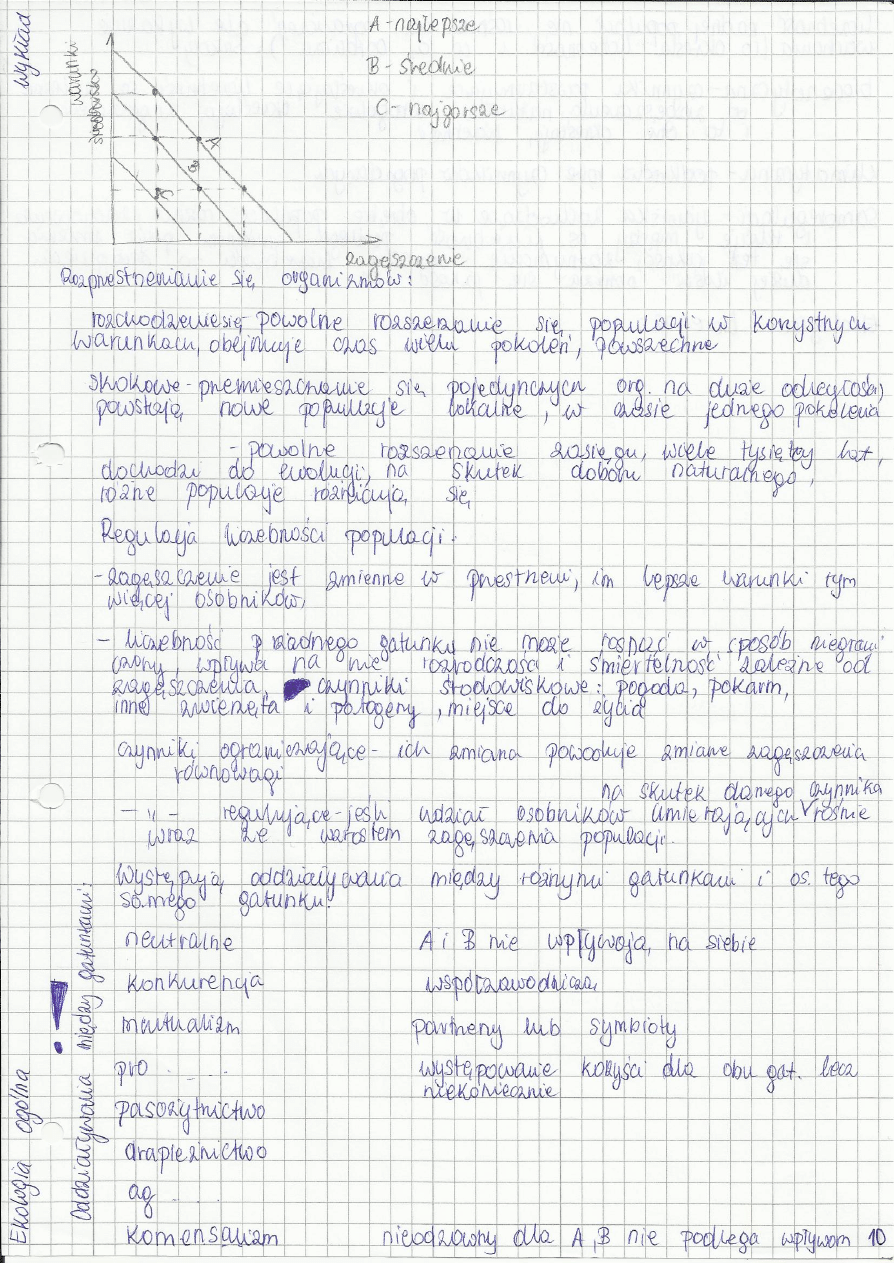 wykład
A - najlepsze
B - średnie
C - najgorsze
warunki
środowiska
A
B
C
zagęszczenie
Rozprzestrzenianie się organizmów:
rozchodzenie się - powolne rozszerzanie się populacji w korzystnych
warunkach, obejmuje czas wielu pokoleń, powszechne
skokowe - przemieszczanie się pojedynczych org. na duże odległości,
powstają nowe populacje lokalne, w czasie jednego pokolenia
- powolne rozszerzanie zasięgu, wiele tysięcy lat,
dochodzi do ewolucji, na skutek doboru naturalnego,
różne populacje różnicują się
Regulacja liczebności populacji.
- zagęszczenie jest zmienne w przestrzeni, im lepsze warunki tym
więcej osobników,
- liczebność żadnego gatunku nie może rosnąć w sposób niegrani-
czony, wpływa na nie rozrodczość i śmiertelność zależne od
zagęszczenia, czynniki środowiskowe: pogoda, pokarm,
inne zwierzęta i patogeny, miejsce do życia
czynniki ograniczające - ich zmiana powoduje zmianę zagęszczenia
równowagi
na skutek danego czynnika
- " - regulujące - jeśli udział osobników umierających rośnie
wraz ze wzrostem zagęszczenia populacji.
Występują oddziaływania między różnymi gatunkami i os. tego
samego gatunku.
Oddziaływania między gatunkami:
!
neutralne A i B nie wpływają na siebie
konkurencja współzawodniczą
mutualizm partnerzy lub symbioty
pro . . . . występowanie korzyści dla obu gat. lecz
niekoniecznie
pasożytnictwo
drapieżnictwo
ag . . . .
Komensalizm nieodzowny dla A, B nie podlega wpływom
10
Ekologia ogólna